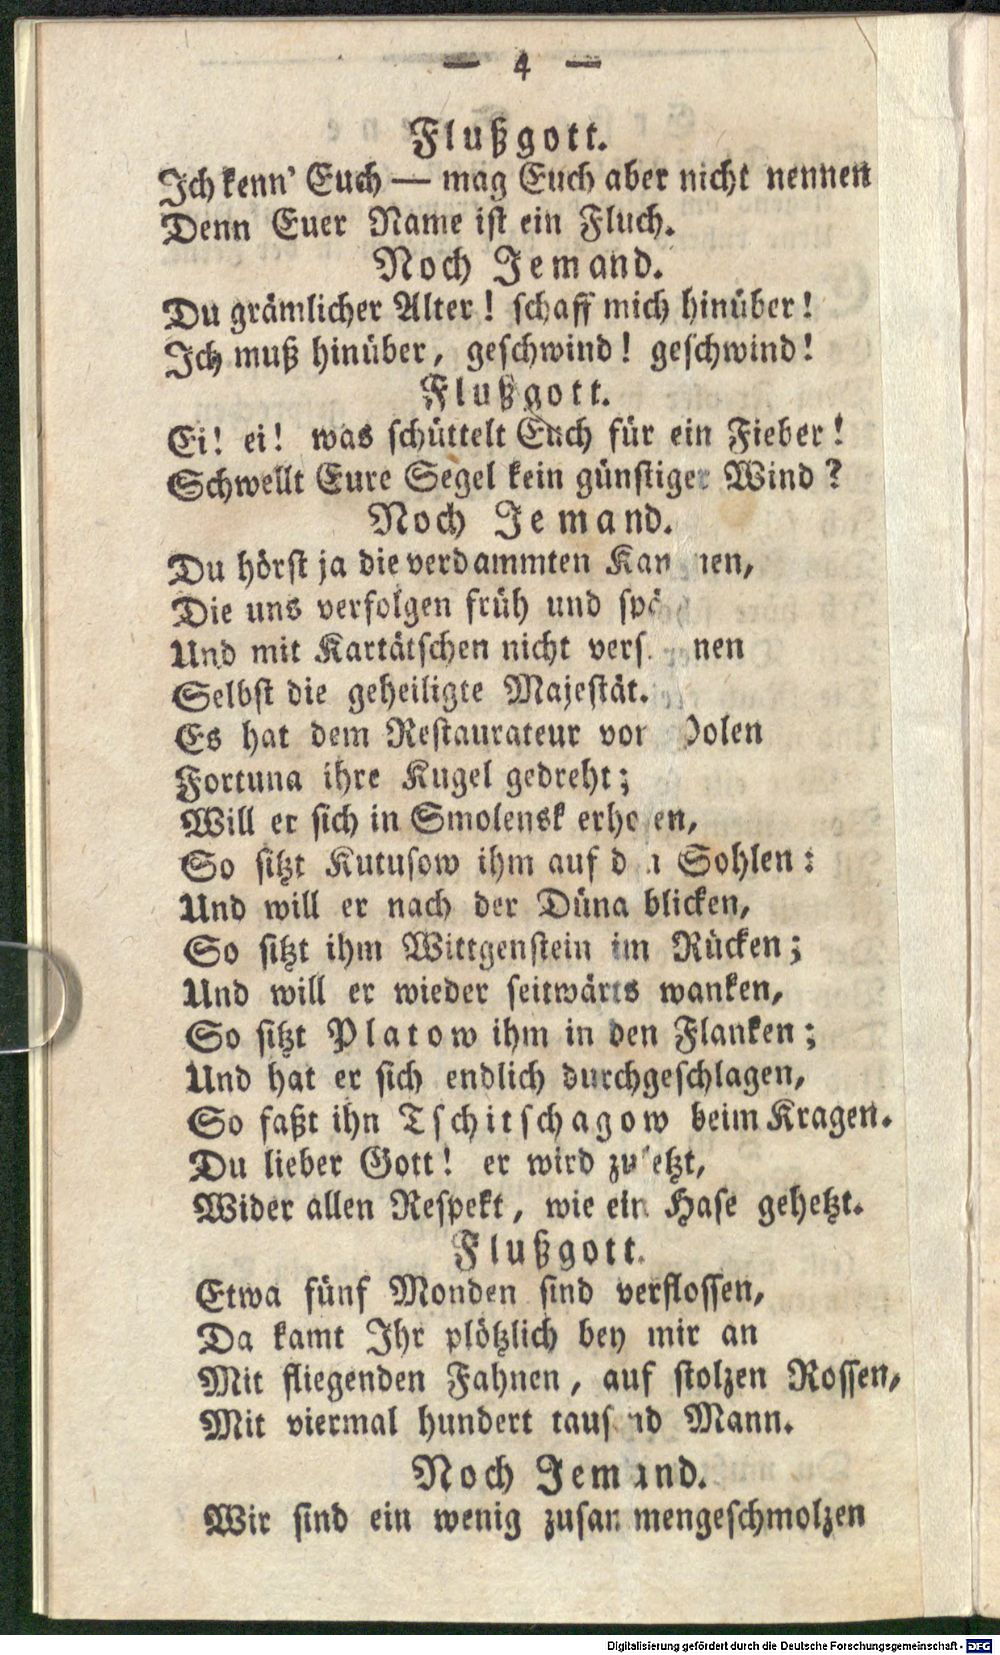 — 4 —
Flußgott.
Ich kenn' Euch — mag Euch aber nicht nennen
Denn Euer Name ist ein Fluch.
Noch Jemand.
Du grämlicher Alter! schaff mich hinüber!
Ich muß hinüber, geschwind! geschwind!
Flußgott.
Ei! ei! was schüttelt Euch für ein Fieber!
Schwellt Eure Segel kein günstiger Wind?
Noch Jemand.
Du hörst ja die verdammten
Die uns verfolgen früh und
Und mit Kartätschen nicht
Selbst die geheiligte Majestät.
Es hat dem Restaurateur von Polen
Fortuna ihre Kugel gedreht;
Will er sich in Smolensk erholen,
So sitzt Kutusow ihm auf den Sohlen:
Und will er nach der Düna blicken,
So sitzt ihm Wittgenstein im Rücken;
Und will er wieder seitwärts wanken,
So sitzt Platow ihm in den Flanken;
Und hat er sich endlich durchgeschlagen,
So faßt ihn Tschitschagow beim Kragen.
Du lieber Gott! er wird zuletzt,
Wider allen Respekt, wie ein Hase gehetzt.
Flußgott.
Etwa fünf Monden sind verflossen,
Da kamt Ihr plötzlich bey mir an
Mit fliegenden Fahnen, auf stolzen Rossen,
Mit viermal hundert tausend Mann.
Noch Jemand.
Wir sind ein wenig zusammengeschmolzen
Digitalisierung gefördert durch die Deutsche Forschungsgemeinschaft - DFG